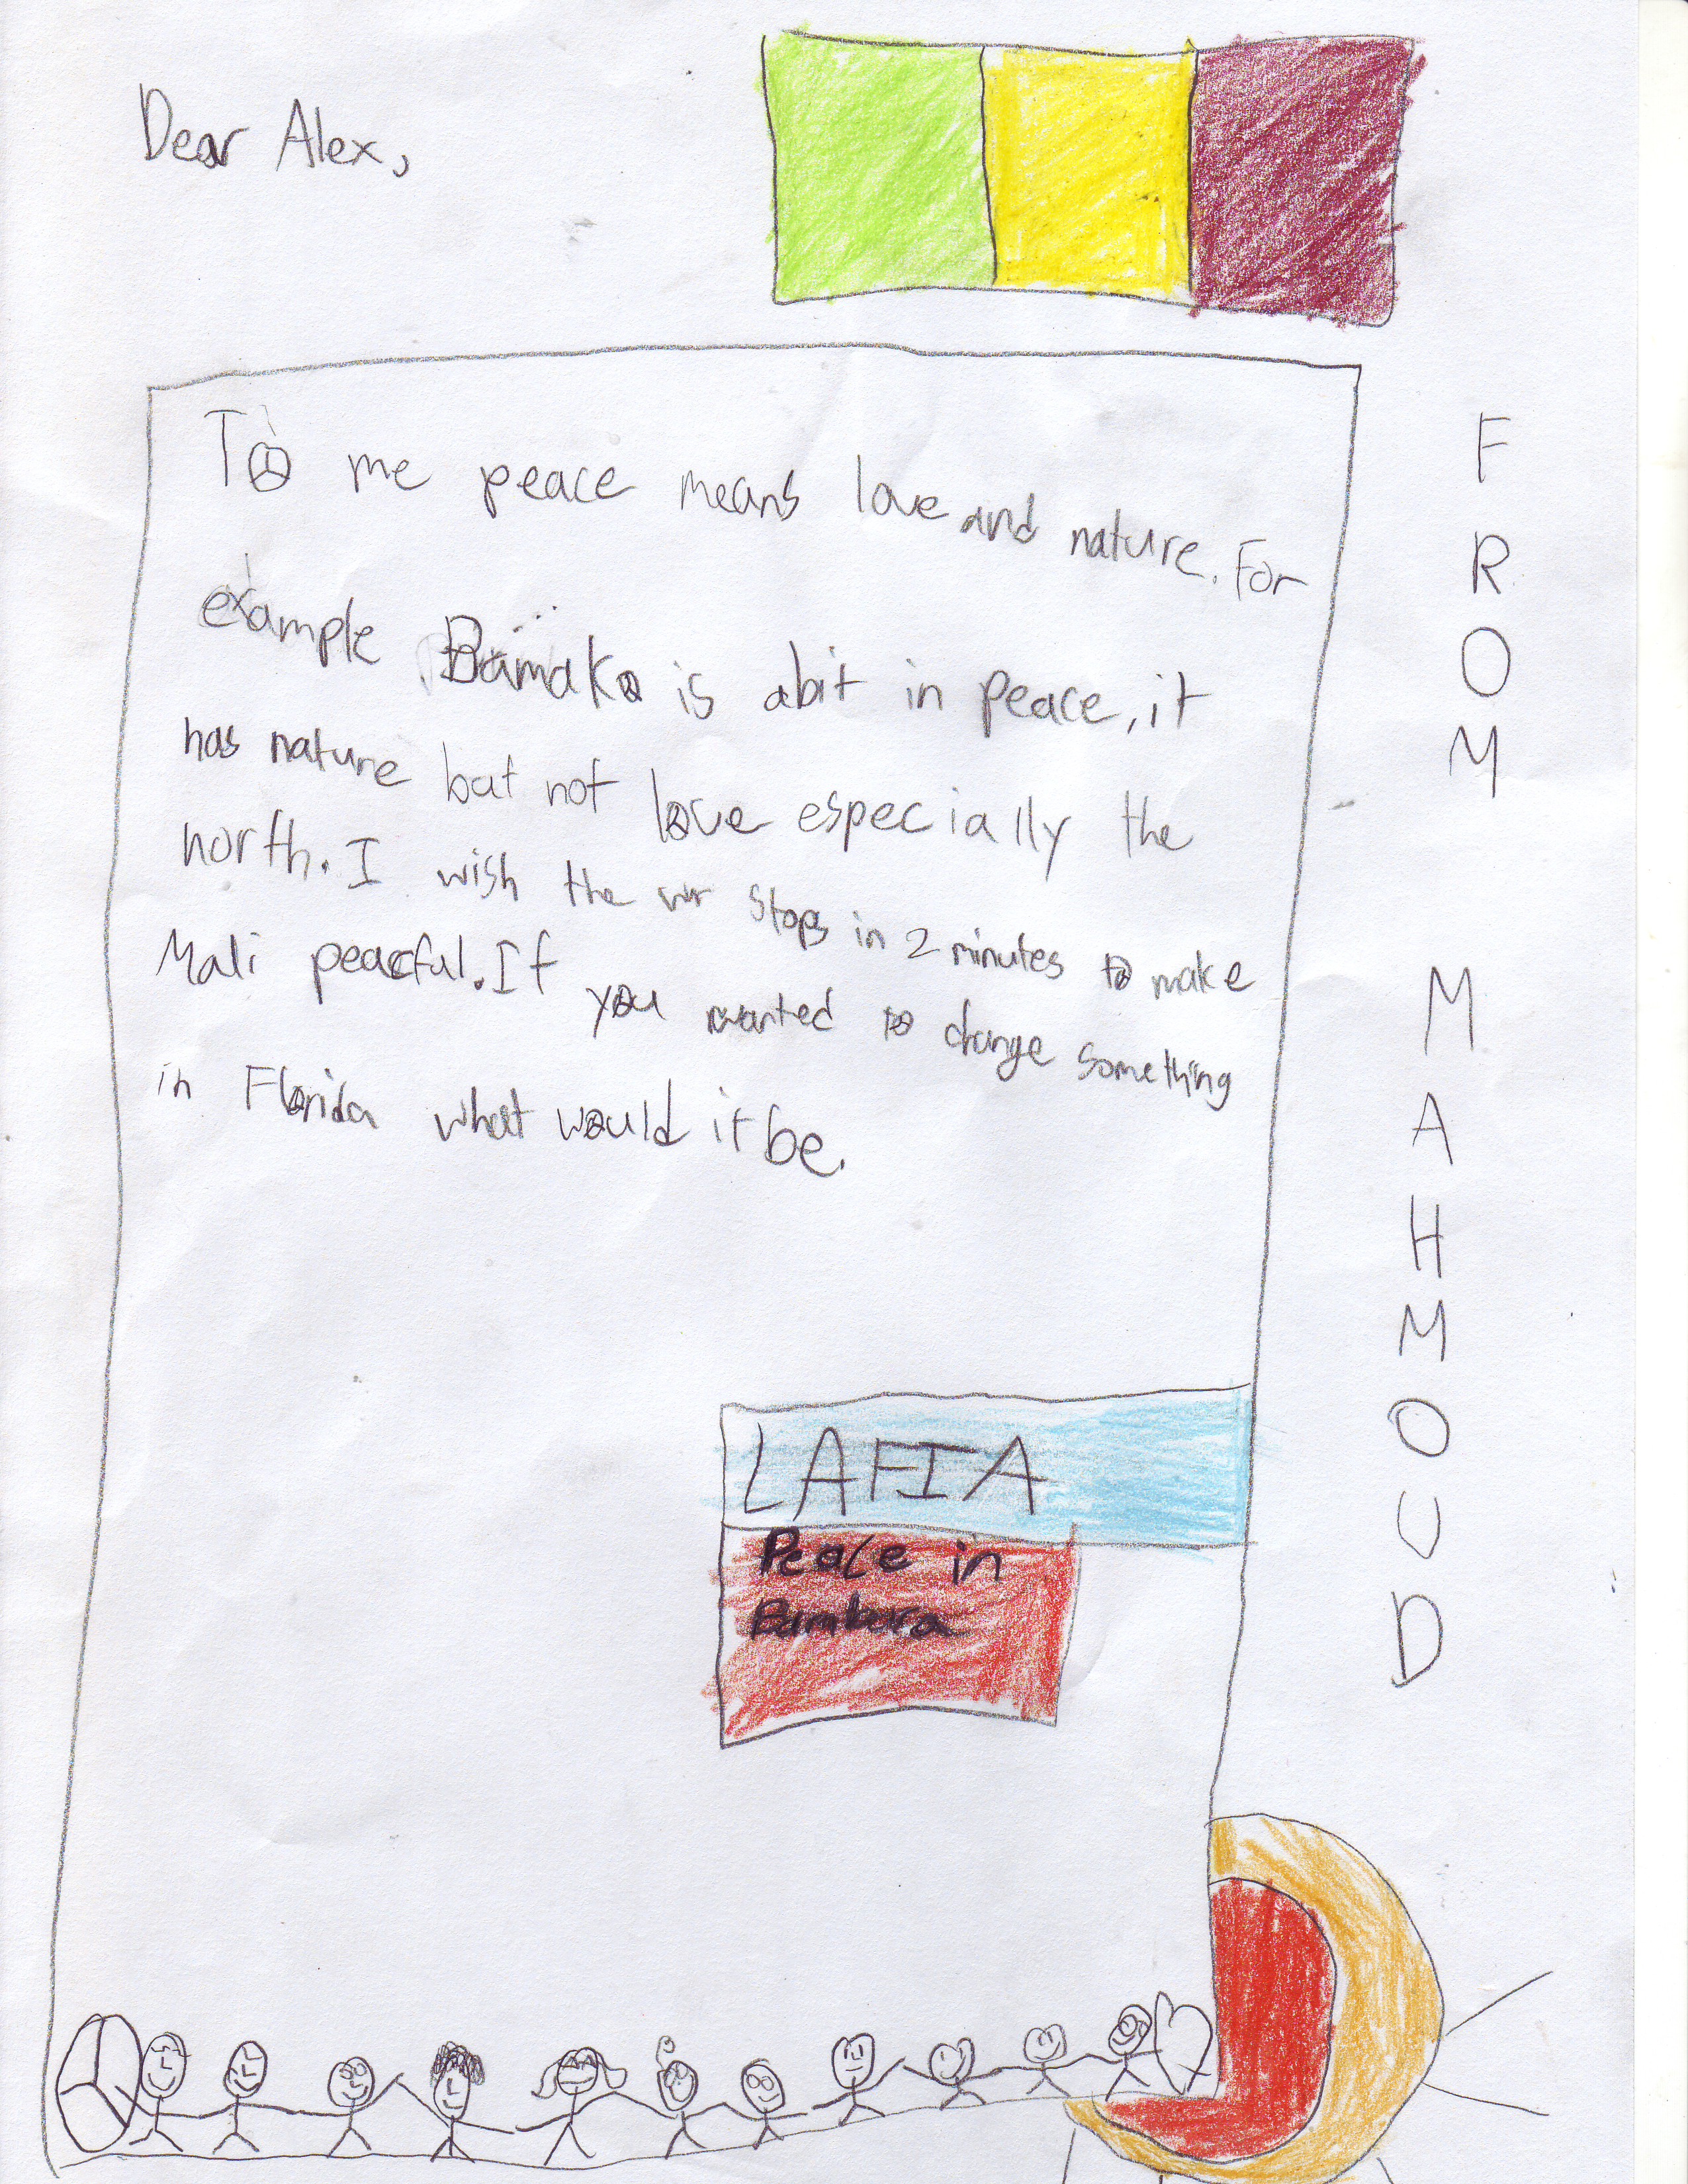 Dear Alex,
To me peace means love and nature. For
example Bamako is abit in peace, it
has nature but not love especially the
north. I wish the wr stops in 2 minutes to make
Mali peacful. If you wanted to change something
in Florida what would it be.
LAFIA
Peace in
Bambara
FROM MAHMOUD